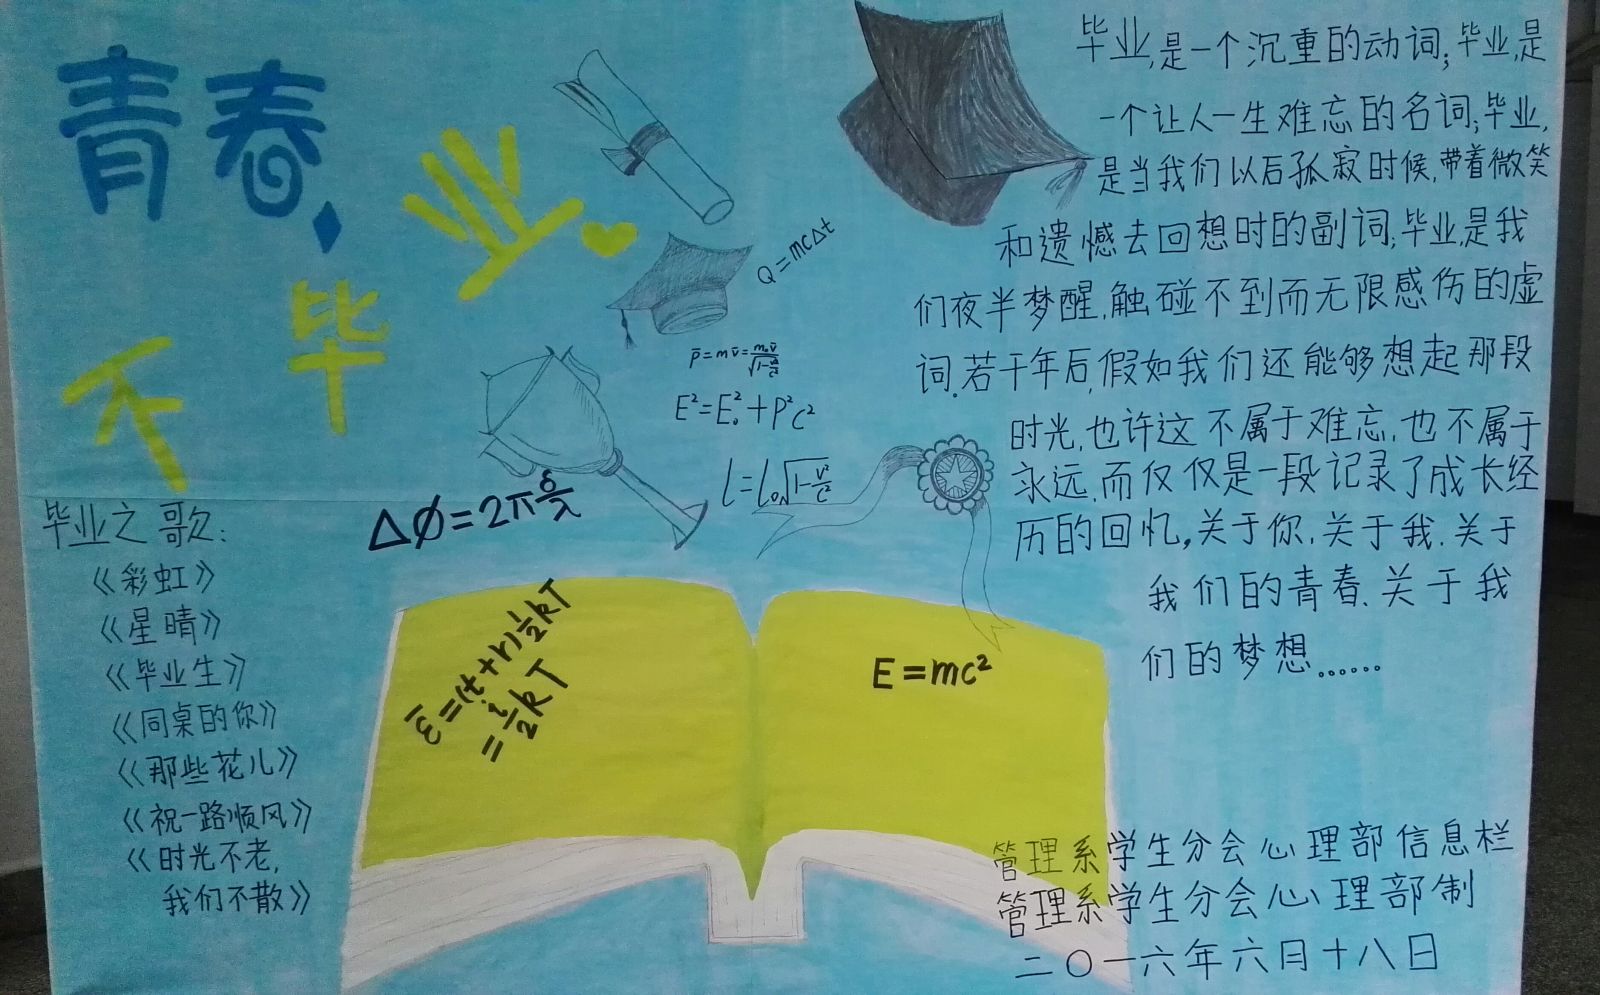 青春,
不毕业
Q=mcΔt
p̄=mv̄=m₀v̄/√(1-v²/c²)
E²=E₀²+P²c²
l=l₀√(1-v²/c²)
Δφ=2πδ/λ
毕业,是一个沉重的动词;毕业,是
一个让人一生难忘的名词;毕业,
是当我们以后孤寂时候,带着微笑
和遗憾去回想时的副词;毕业,是我
们夜半梦醒,触碰不到而无限感伤的虚
词.若干年后,假如我们还能够想起那段
时光,也许这不属于难忘,也不属于
永远,而仅仅是一段记录了成长经
历的回忆,关于你,关于我.关于
我们的青春.关于我
们的梦想……
毕业之歌:
《彩虹》
《星晴》
《毕业生》
《同桌的你》
《那些花儿》
《祝一路顺风》
《时光不老,
我们不散》
ε̄=(t+r)½kT
=i/2kT
E=mc²
管理系学生分会心理部信息栏
管理系学生分会心理部制
二〇一六年六月十八日